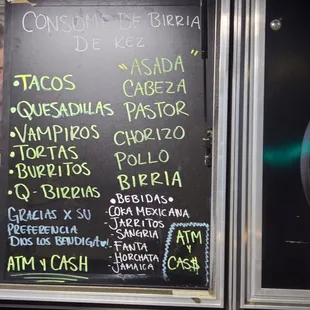 CONSOME DE BIRRIA
DE REZ
• TACOS
• QUESADILLAS
• VAMPIROS
• TORTAS
• BURRITOS
• Q-BIRRIAS
GRACIAS X SU
PREFERENCIA
DIOS LOS BENDIGA!
ATM Y CASH
"ASADA"
CABEZA
PASTOR
CHORIZO
POLLO
BIRRIA
• BEBIDAS •
- COKA MEXICANA
- JARRITOS
- SANGRIA
- FANTA
- HORCHATA
- JAMAICA
ATM
Y
CA$$